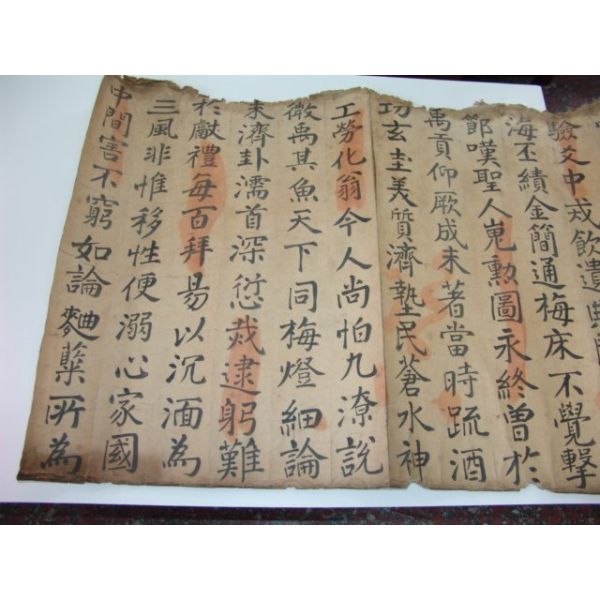 驗爻中戒飲遺典
海丕績金簡通梅床不覺擊
節嘆聖人嵬勳圖永終曾於
禹貢仰厥成未著當時疏酒
功玄圭美質濟墊民蒼水神
工勞化翁今人尚怕九潦說
微禹其魚天下同梅燈細論
未濟卦濡首深愆哉逮躬難
於獻禮每百拜昜以沉湎為
三風非惟移性便溺心家國
中間害不窮如論麯糵所為